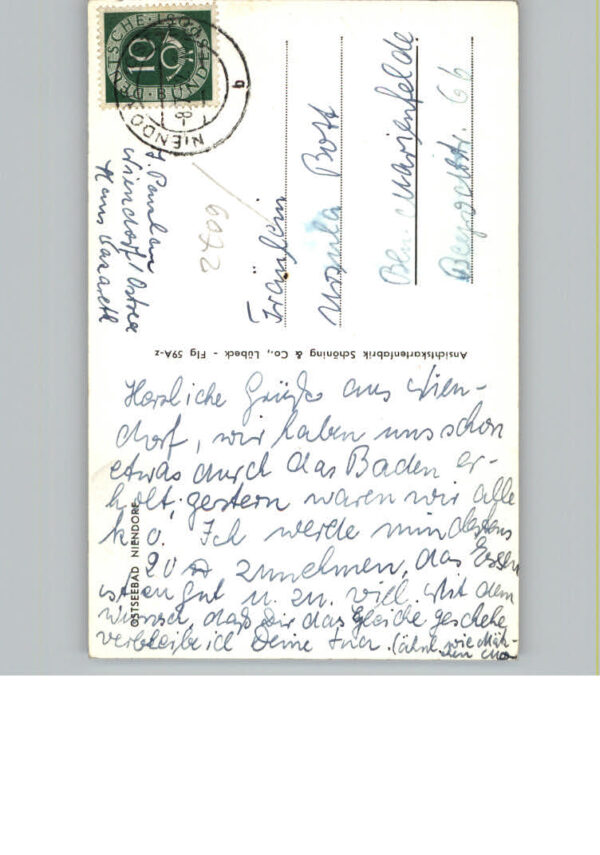 DEUTSCHE BUNDESPOST
10
NIENDORF
b
Niendorf/Ostsee
Haus Nazareth
6072
Fräulein
Ursula Bott
Bln. Marienfelde
Beyrodtstr. 66
Ansichtskartenfabrik Schöning & Co., Lübeck - Flg 59A-z
OSTSEEBAD NIENDORF
Herzliche Grüße aus Nien-
dorf, wir haben uns schon
etwas durch das Baden er-
holt, gestern waren wir alle
k.o. Ich werde mindestens
20 ℔ zunehmen, das Essen
ist gut u. zu viel. Mit dem
Wunsch, daß Dir das Gleiche geschehe,
verbleibe ich Deine
(ähnl. wie Mäd-